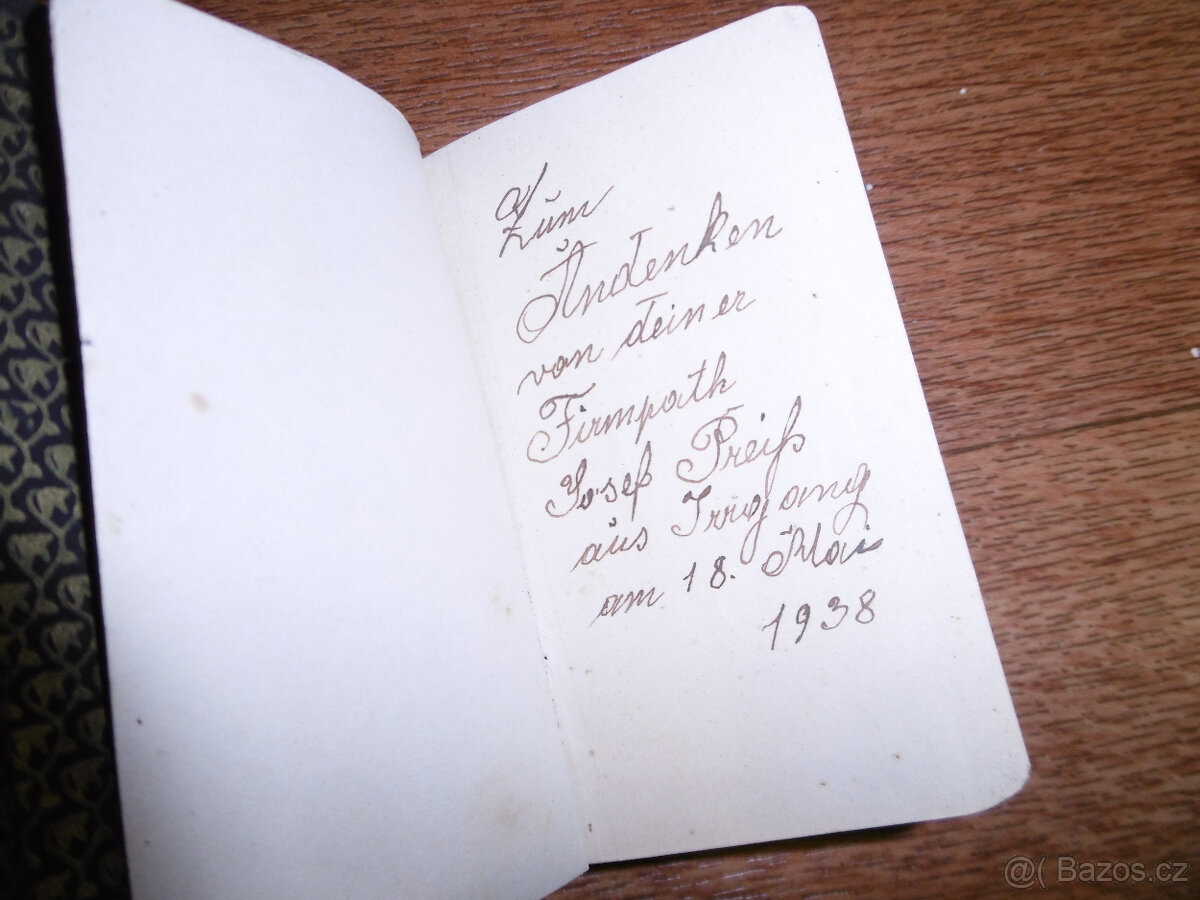 Zum
Andenken
von deiner
Firmpath
Josef Preiß
aus Irrgang
am 18. Mai
1938
@( Bazos.cz